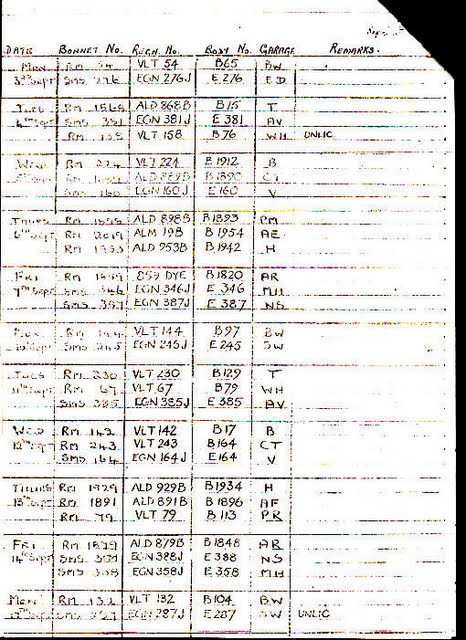 DATE BONNET No. REGN. No. BODY No. GARAGE REMARKS.
MON RM 54 VLT 54 B65 BW
3rd Sept SMS 276 EGN 276J E276 ED
TUES RM 1868 ALD 868B B15 T
4th Sept SMS 381 EGN 381J E 381 AV
RM 158 VLT 158 B76 WH UNLIC
WED RM 224 VLT 224 B1912 B
ALD 889B B1890 CT
SMS 160 EGN 160J E160 V
THURS RM 1898 ALD 898B B1893 PM
6th Sept RM 2019 ALM 19B B1954 AE
RM 1953 ALD 953B B1942 H
FRI RM 1859 859 DYE B1820 AR
7th Sept SMS 346 EGN 346J E 346 MH
SMS 387 EGN 387J E 387 NS
MON RM 144 VLT 144 B97 BW
10th Sept SMS 245 EGN 245J E245 SW
TUES RM 230 VLT 230 B129 T
11th Sept RM 67 VLT 67 B79 WH
SMS 385 EGN 385J E385 AV
WED RM 142 VLT 142 B17 B
12th Sept RM 243 VLT 243 B164 CT
SMS 164 EGN 164J E164 V
THURS RM 1929 ALD 929B B1934 H
13th Sept RM 1891 ALD 891B B1896 AF
RM 79 VLT 79 B113 PR
FRI RM 1879 ALD 879B B1848 AR
14th Sept SMS 388 EGN 388J E388 NS
SMS 358 EGN 358J E358 MH
MON RM 132 VLT 132 B104 BW
SMS 287 EGN 287J E287 SW UNLIC